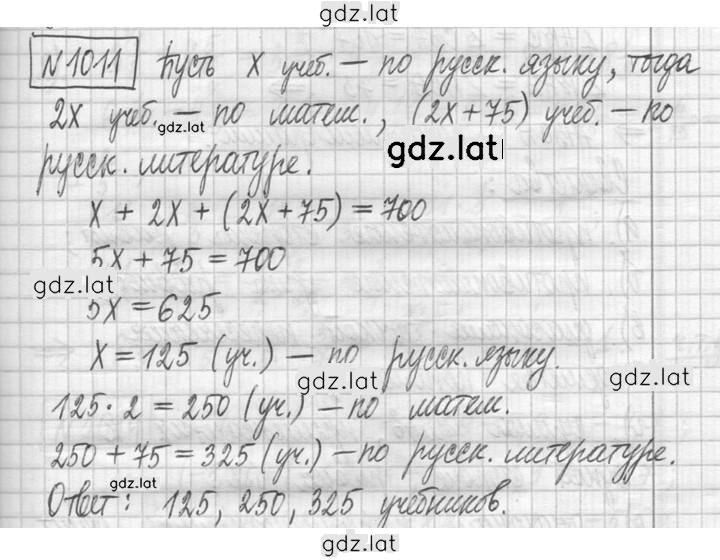 gdz.lat
N 1011 Пусть x учеб. – по русск. языку, тогда
2x учеб. – по матем., (2x+75) учеб. – по
gdz.lat
gdz.lat
русск. литературе.
x + 2x + (2x+75) = 700
5x + 75 = 700
gdz.lat
5x = 625
x = 125 (уч.) – по русск. языку.
gdz.lat
gdz.lat
125 · 2 = 250 (уч.) – по матем.
250 + 75 = 325 (уч.) – по русск. литературе.
gdz.lat
Ответ: 125, 250, 325 учебников.
gdz.lat